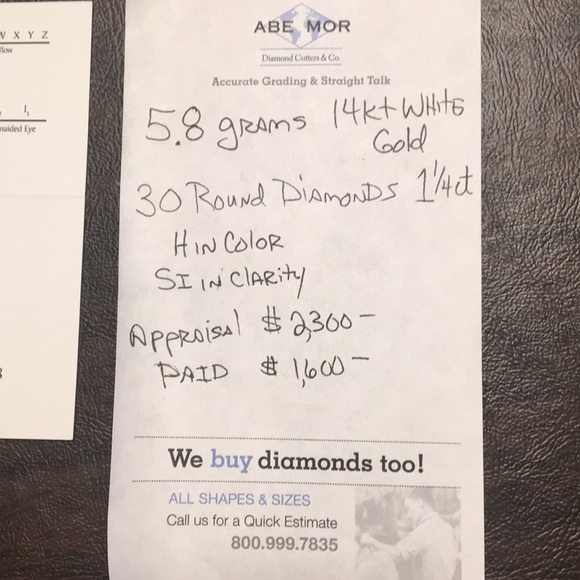 V X Y Z
llow
I₁
naided Eye
ABE MOR
Diamond Cutters & Co.
Accurate Grading & Straight Talk
5.8 grams 14kt White
Gold
30 Round Diamonds 1 1/4 ct
H in Color
SI in Clarity
Appraisal $2,300—
PAID $1,600—
We buy diamonds too!
ALL SHAPES & SIZES
Call us for a Quick Estimate
800.999.7835